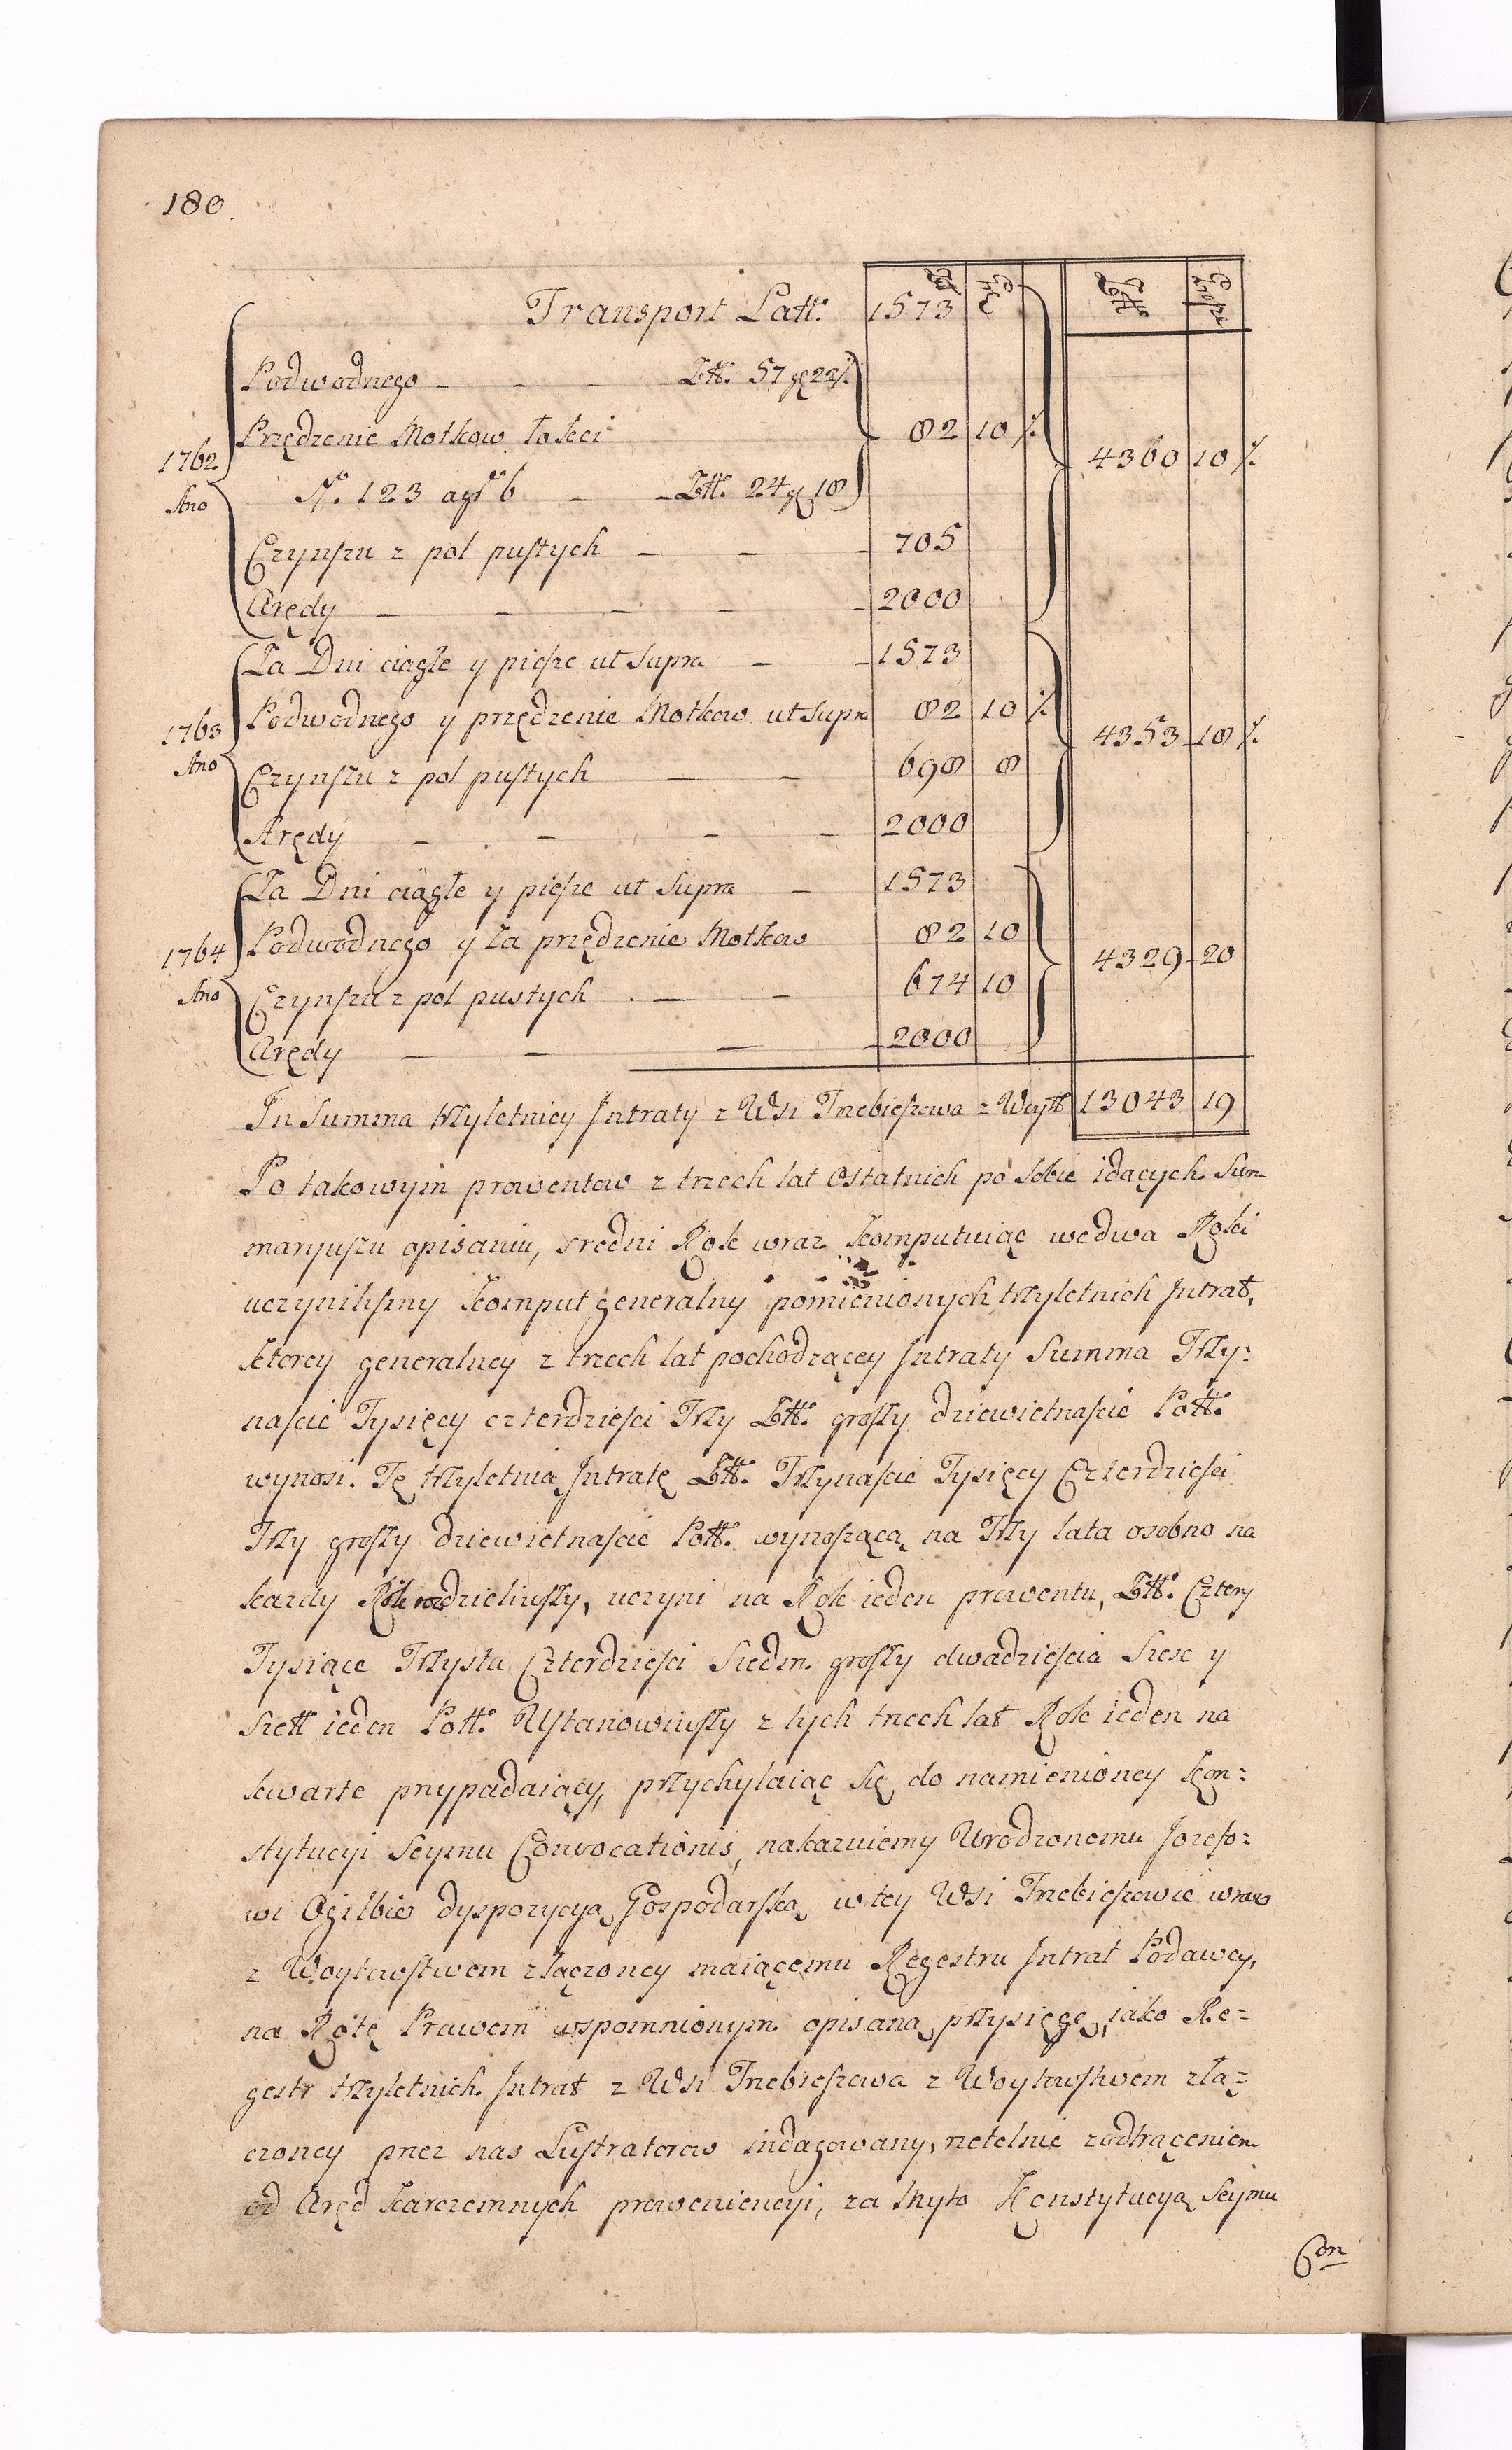 180.
Transport Latt. 1573
Podwodnego — — — Ztt. 57 gr 22 ⁒
Przędzenie Motkow łokci 82 10 ⁒
1762 4360 10 ⁒
Ano No. 123 a gr 6 — — Ztt. 24 gr 18
Czynszu z pol pustych — — — 705
Arędy — — — — — 2000
Za Dni ciągłe y piesze ut supra — — 1573
1763 Podwodnego y przędzenie Motkow ut supra 82 10 ⁒
Ano 4353 18 ⁒
Czynszu z pol pustych — — 698 8
Arędy — — — — 2000
Za Dni ciągłe y piesze ut supra — 1573
1764 Podwodnego y za przędzenie Motkow 82 10
Ano 4329 20
Czynszu z pol pustych — — 674 10
Arędy — — — — 2000
In Summa trzyletniey Intraty z Wsi Trzebieszowa z Woytt 13043 19
Po takowym prowentow z trzech lat ostatnich po sobie idących Sum
maryuszu opisaniu, sredni Rok wraz komputuiąc wedwa Roki
uczynilismy komput generalny pomienionych trzyletnich Intrat,
ktorey generalney z trzech lat pochodzącey Intraty Summa Trzy:
nascie Tysięcy czterdziesci Trzy Ztt. groszy dziewietnascie Poltt.
wynosi. Tę trzyletnią Intratę Ztt. Trzynascie Tysięcy Czterdziesci
Trzy groszy dziewietnascie Poltt. wynoszącą na Trzy lata osobno na
kazdy Rok rozdzieliwszy, uczyni na Rok ieden prowentu, Ztt. Cztery
Tysiące Trzysta Czterdziesci Siedm groszy dwadziescia Szesc y
Szelt ieden Poltt. Ustanowiwszy z tych trzech lat Rok ieden na
kwarte przypadaiący, przychylaiąc się do namienioney Kon:
stytucyi Seymu Convocationis, nakazuiemy Urodzonemu Jozefo:
wi Ogilbie dyspozycyą Gospodarską w tey Wsi Trzebieszowie wraz
z Woytowstwem złączoney maiącemu Regestru Intrat Podawcy,
na Rotę Prawem wspomnionym opisaną przysięgę, iako Re=
gestr trzyletnich Intrat z Wsi Trzebieszowa z Woytowstwem złą=
czoney przez nas Lustratorow indagowany, rzetelnie z odtrąceniem
od Aręd karczemnych proweniencyi, za Myto Konstytucyą Seymu
Con